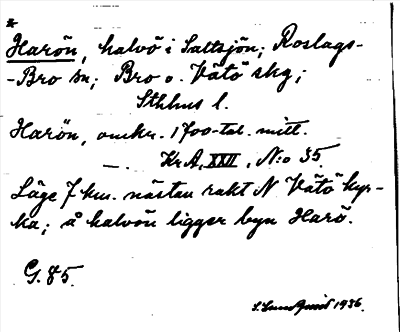 *
Harön, halvö i Saltsjön; Roslags-
-Bro sn; Bro o. Vätö skg;
Sthlms l.
Harön, omkr. 1700-tal. mitt.
—. Kr A, XXII, N:o 35.
Läge 7 km. nästan rakt N Vätö kyr-
ka; å halvön ligger byn Harö.
G. 85.
S. Lundquist 1936.